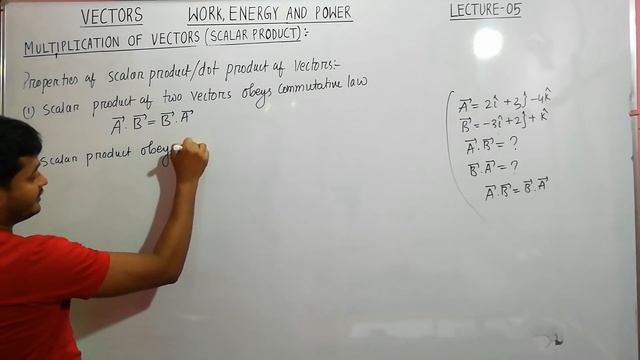 VECTORS WORK, ENERGY AND POWER LECTURE-05
MULTIPLICATION OF VECTORS (SCALAR PRODUCT):
Properties of scalar product/dot product of vectors:-
(1) Scalar product of two vectors obeys commutative law
A⃗. B⃗ = B⃗. A⃗
scalar product obeys
A⃗ = 2î + 3ĵ - 4k̂
B⃗ = -3î + 2ĵ + k̂
A⃗. B⃗ = ?
B⃗. A⃗ = ?
A⃗. B⃗ = B⃗. A⃗